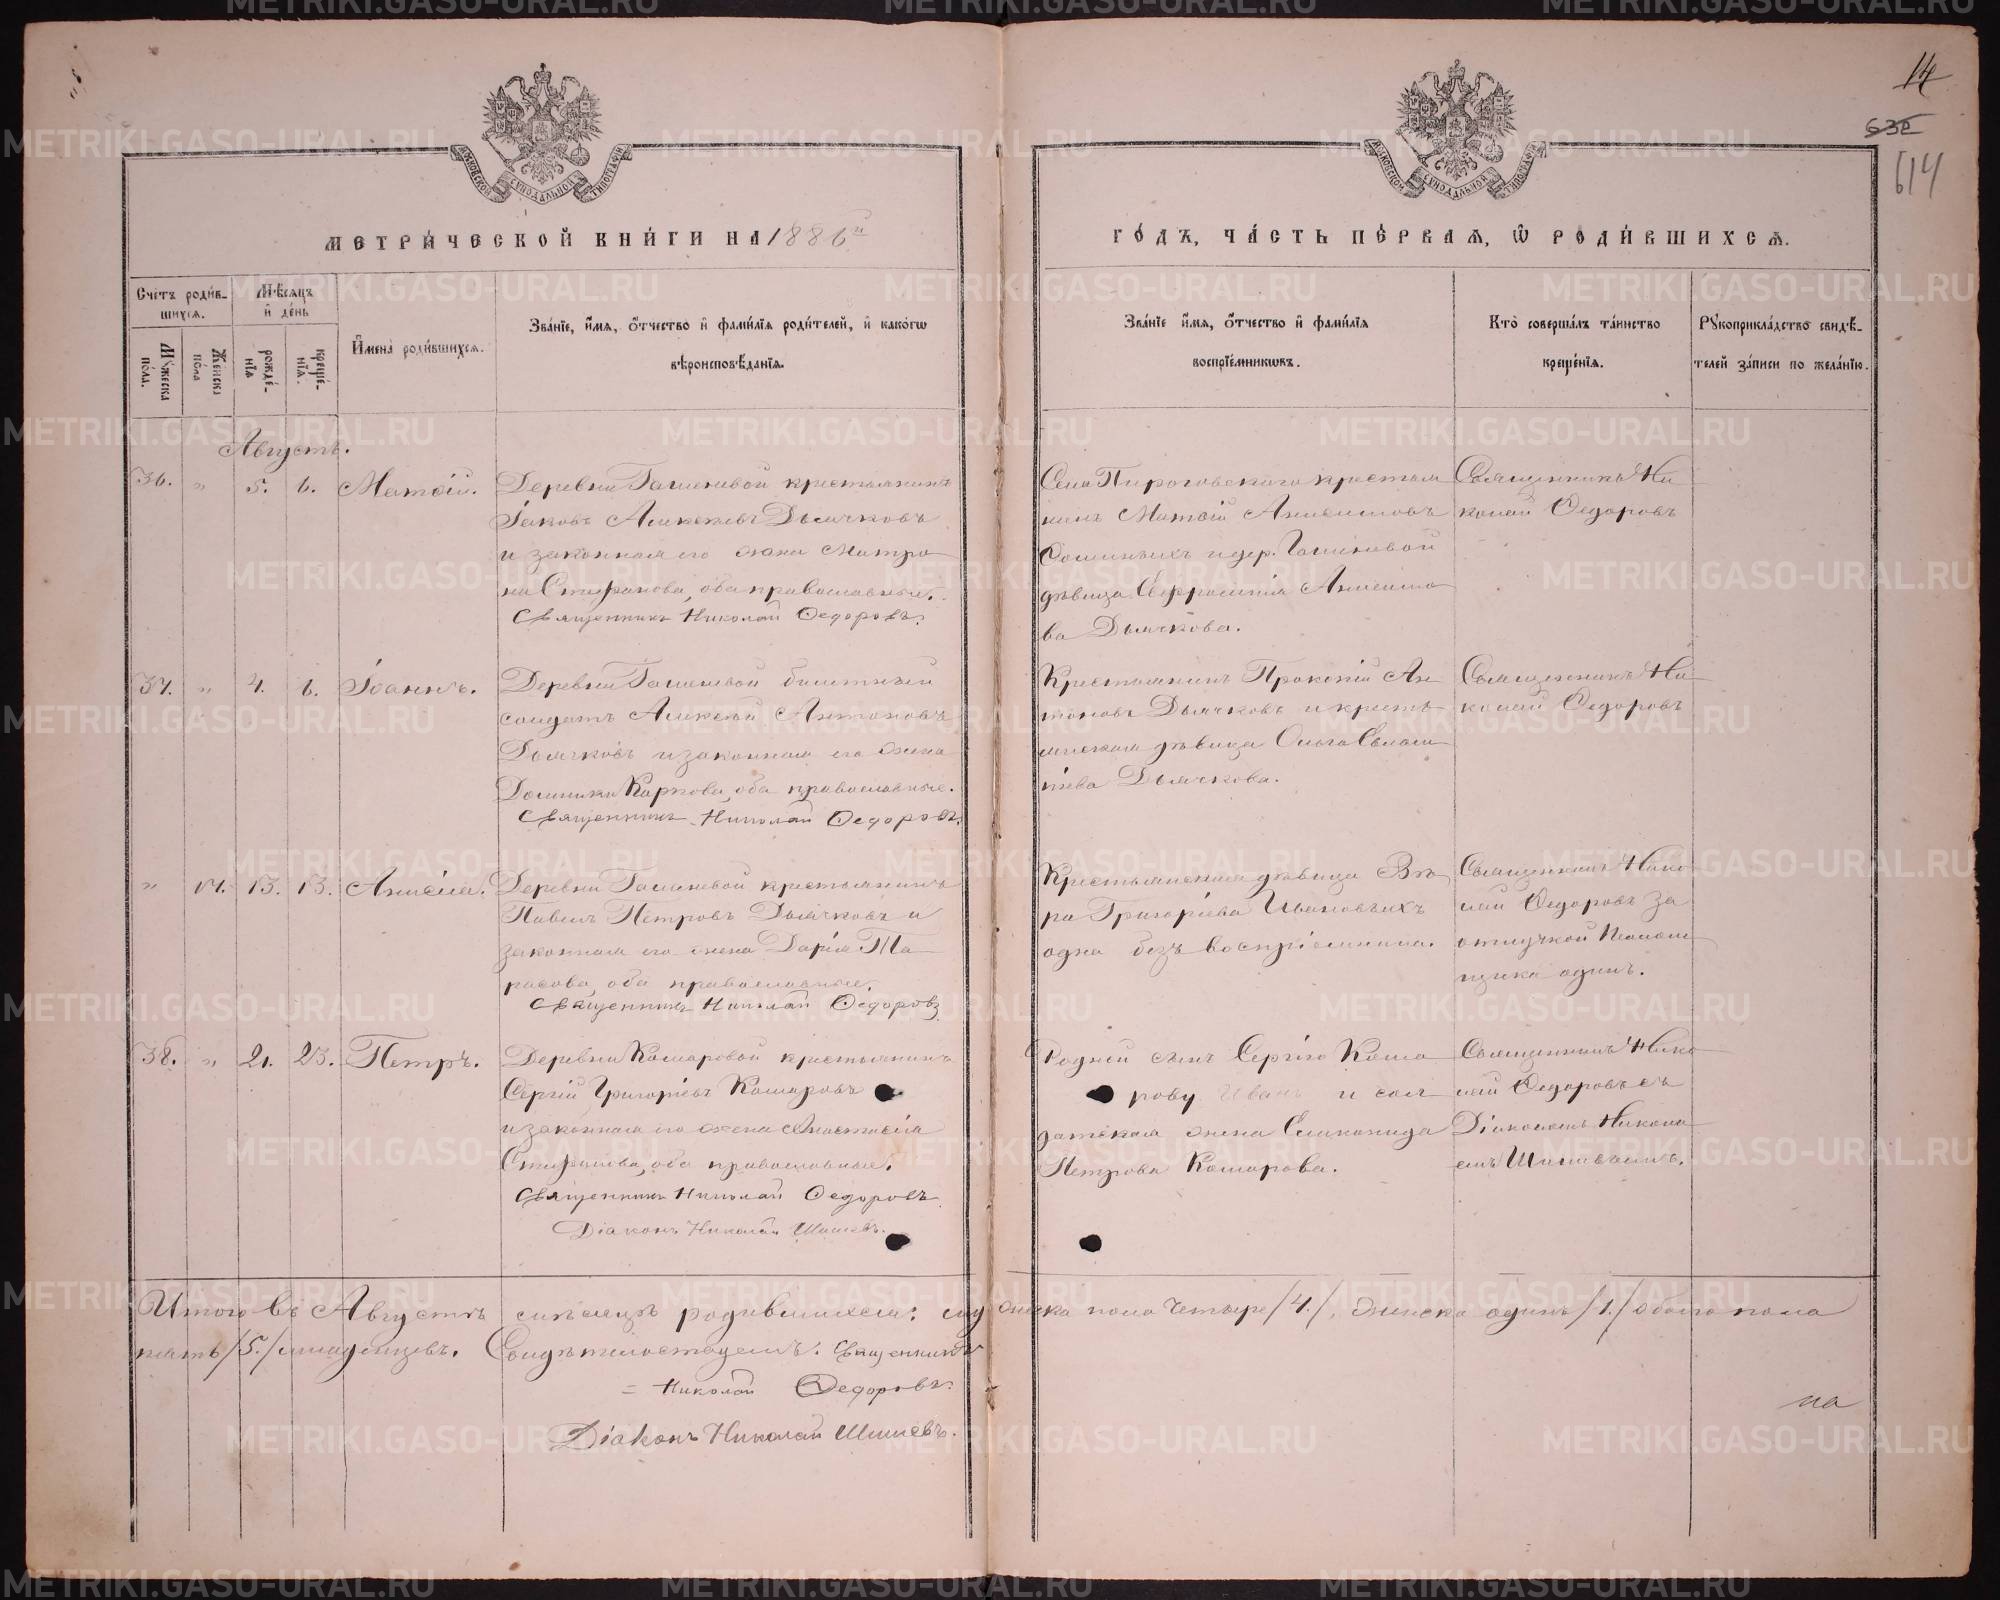 14
632
614
МОСКОВСКОЙ СѴНОДАЛЬНОЙ ТИПОГРАФІИ
МОСКОВСКОЙ СѴНОДАЛЬНОЙ ТИПОГРАФІИ
МЕТРИ́ЧЕСКОЙ КНИ́ГИ НА 1886й
ГО́ДЪ, ЧА́СТЬ ПЕ́РВАЯ, Ѡ РОДИ́ВШИХСЯ.
Сче́тъ роди́в-
шихся.
Мѣ́сяцъ
и де́нь
Му́жеска по́ла.
Же́нска по́ла
рожде́-нія
креще́-нія.
Имена̀ роди́вшихся.
Зва́ніе, и́мя, о́тчество и фами́лія роди́телей, и како́гѡ
вѣроисповѣ́данія.
Зва́ніе и́мя, о́тчество и фами́лія
воспріе́мникѡвъ.
Кто̀ соверша́лъ та́инство
креще́нія.
Рукоприкла́дство свидѣ́-
телей за́писи по жела́нію.
Августъ.
36. " 5. 6. Матѳій. Деревни Галеневой крестьянинъ
Іаковъ Алексѣевъ Дьячковъ
и законная его жена Матро
на Стефанова, оба православные.
Священникъ Николай Ѳедоровъ.
Села Пироговскаго крестья
нинъ Матѳій Анисимовъ
и дер. Галеневой
дѣвица Евфросинія Анисимо
ва Дьячкова.
Священникъ Ни
колай Ѳедоровъ
37. " 4. 6. Іоаннъ. Деревни Галеневой билетный
солдатъ Алексѣй Антоновъ
Дьячковъ и законная его жена
Домника Карпова, оба православные.
Священникъ Николай Ѳедоровъ.
Крестьянинъ Прокопій Ан
тоновъ Дьячковъ и кресть
янская дѣвица Ольга
Дьячкова.
Священникъ Ни
колай Ѳедоровъ
" 14. 13. 13. Анисія. Деревни Галеневой крестьянинъ
Павелъ Петровъ Дьячковъ и
законная его жена Дарія Та
расова, оба православные.
Священникъ Николай Ѳедоровъ
Крестьянская дѣвица Вѣ
ра Григоріева Ивановыхъ
одна безъ воспріемника.
Священникъ Нико
лай Ѳедоровъ за
отлучкой Псалом
щика одинъ.
38. " 21. 23. Петръ. Деревни Комаровой крестьянинъ
Сергій Григоріевъ Комаровъ
и законная его жена Анастасія
оба православные.
Священникъ Николай Ѳедоровъ
Діаконъ Николай Шишевъ.
Родной сынъ Сергію Кома
рову Иванъ и сол
датская жена
Петрова Комарова.
Священникъ Нико
лай Ѳедоровъ съ
Діакономъ Никола
емъ Шишевымъ.
Итого въ Августѣ мѣсяцѣ родившихся: мужеска пола четыре /4./, женска одинъ /1./ обоего пола
пять /5./ младенцевъ. Священникъ
Николай Ѳедоровъ.
Діаконъ Николай Шишевъ.